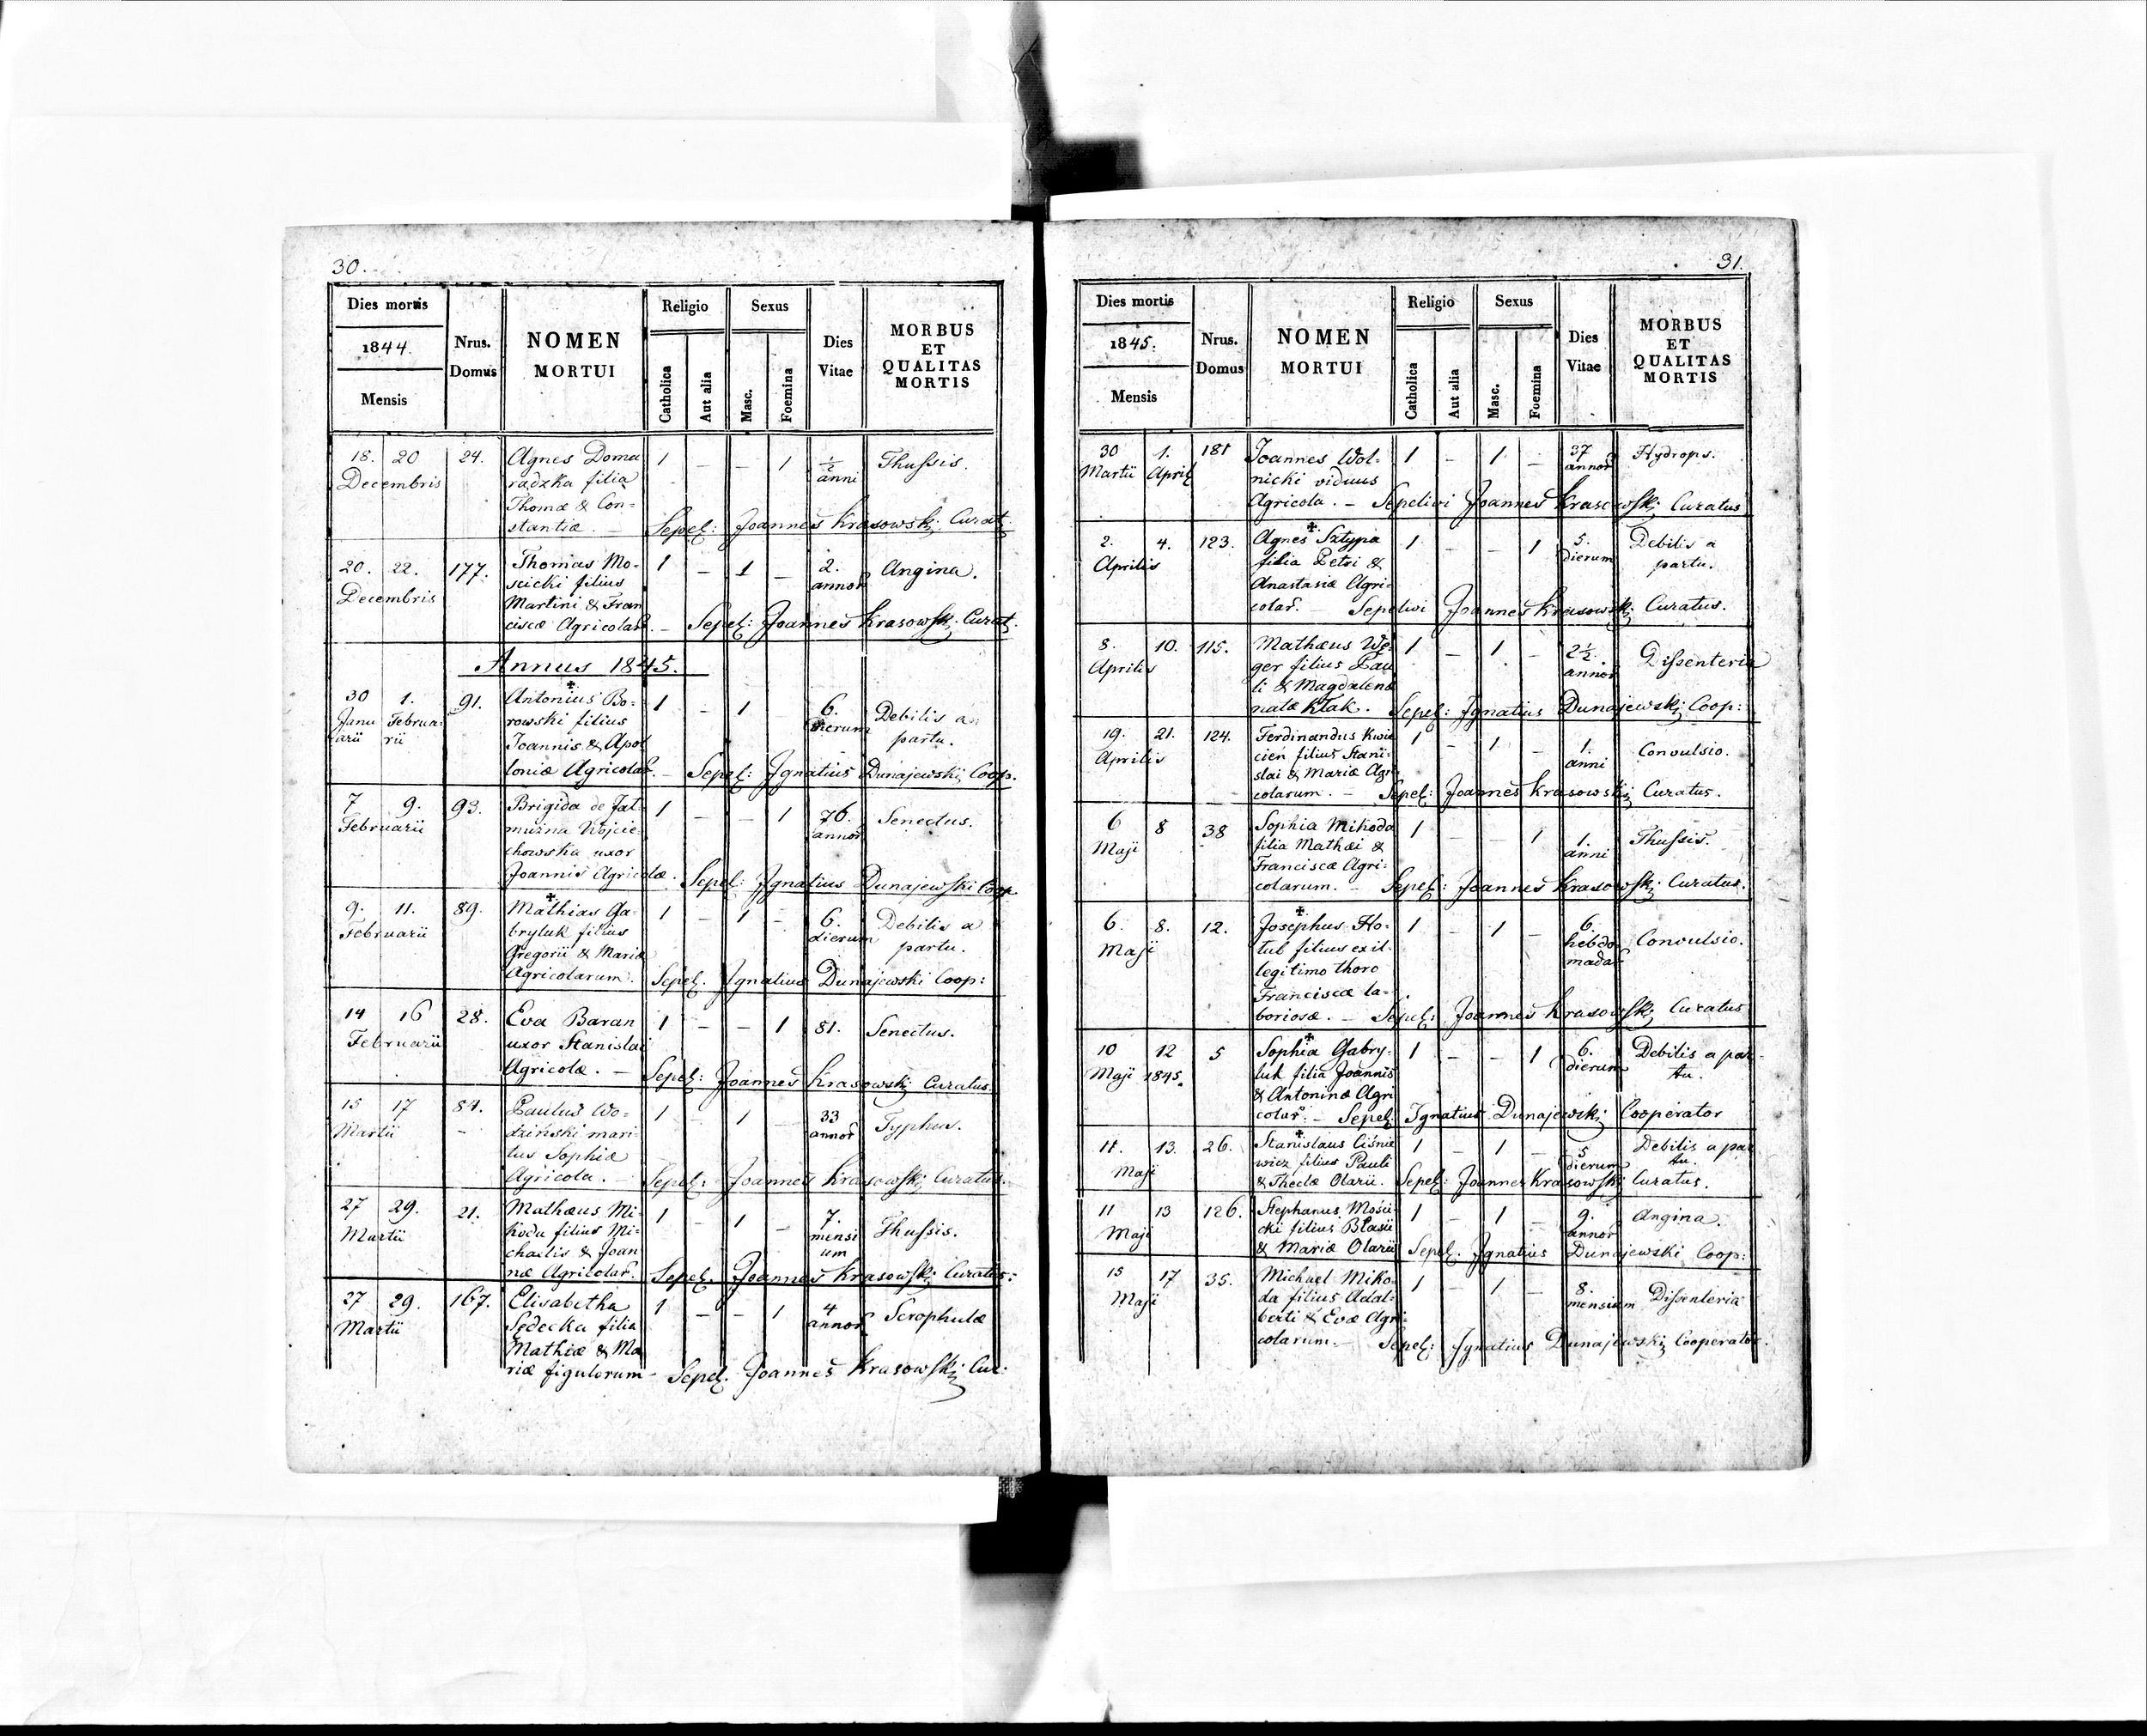 30.
Dies mortis
1844.
Mensis
Nrus.
Domus
NOMEN
MORTUI
Religio
Catholica
Aut alia
Sexus
Masc.
Foemina
Dies
Vitae
MORBUS
ET
QUALITAS
MORTIS
18. 20 24. Agnes Doma 1 - - 1 1/2 Thussis.
Decembris radzka filia anni
Thomæ & Con=
stantiæ. - Sepel: Joannes Krasowski Curat:
20. 22. 177. Thomas Mo- 1 - 1 - 2. Angina.
Decembris scicki filius annor
Martini & Fran
ciscæ Agricolar. - Sepel: Joannes Krasowski Curat.
Annus 1845.
30 1. 91. Antonius Bo- 1 - 1 6. Debilis a
Janu Februa- rowski filius dierum partu.
arii rii Joannis & Apol
loniæ Agricolar. - Sepel: Ignatius Dunajewski Coop.
7 9. 93. Brigida de Jał- 1 - - 1 76. Senectus.
Februarii mużna Wojcie- annor
chowska uxor
Joannis Agricolæ. Sepel: Ignatius Dunajewski Coop
9. 11. 89. Mathias Ga- 1 - 1 - 6. Debilis a
Februarii bryluk filius dierum partu.
Gregorii & Mariæ
Agricolarum. Sepel. Ignatius Dunajewski Coop:
14 16 28. Eva Baran 1 - - 1 81. Senectus.
Februarii uxor Stanislai
Agricolæ. - Sepel: Joannes Krasowski Curatus.
15 17 84. Paulus Wo- 1 - 1 33 Typhus.
Martii - dziński mari- annor
tus Sophiæ
Agricola. - Sepel: Joannes Krasowski Curatus.
27 29. 21. Mathæus Mi- 1 - 1 - 7. Thussis.
Martii koda filius Mi- mensi
chaelis & Joan um
næ Agricolar. Sepel. Joannes Krasowski Curatus.
27 29. 167. Elisabetha 1 - - 1 4 Scrophulæ
Martii Sędecka filia annor
Mathiæ & Ma
riæ figulorum - Sepel. Joannes Krasowski Cur.
31.
Dies mortis
1845.
Mensis
Nrus.
Domus
NOMEN
MORTUI
Religio
Catholica
Aut alia
Sexus
Masc.
Foemina
Dies
Vitae
MORBUS
ET
QUALITAS
MORTIS
30 1. 181 Joannes Wol- 1 - 1 - 37 Hydrops.
Martii April nicki viduus annor
Agricola. - Sepelivi Joannes Krasowski Curatus
2. 4. 123. Agnes Sztypa 1 - - 1 5. Debilis a
Aprilis filia Petri & dierum partu.
Anastasiæ Agri-
colar. - Sepelivi Joannes Krasowski Curatus.
8. 10. 115. Mathæus Wę 1 - 1 - 2 1/2. Dissenteria
Aprilis ger filius Pau annor
li & Magdalenæ
natæ Kłak. Sepel: Ignatius Dunajewski Coop:
19. 21. 124. Ferdinandus Kwie 1 - 1 - 1. Convulsio.
Aprilis cień filius Stani- anni
slai & Mariæ Agri
colarum. - Sepel: Joannes Krasowski Curatus.
6 8 38 Sophia Mikoda 1 - - 1 1. Thussis.
Maji filia Mathæi & anni
Franciscæ Agri-
colarum. - Sepel: Joannes Krasowski Curatus.
6. 8. 12. Josephus Ko- 1 - 1 - 6. Convulsio.
Maji tub filius ex il- hebdo
legitimo thoro madar
Franciscæ la-
boriosæ. - Sepel: Joannes Krasowski Curatus
10 12 5 Sophia Gabry- 1 - - 1 6. Debilis a par-
Maji 1845. luk filia Joannis dierum tu.
& Antoninæ Agri
colar. - Sepel Ignatius Dunajewski Cooperator
11. 13. 26. Stanislaus Ciśnie 1 - 1 - 5 Debilis a par
Maji wicz filius Pauli dierum tu.
& Theclæ Olarii. Sepel: Joannes Krasowski Curatus.
11 13 126. Stephanus Mości- 1 - 1 - 9. Angina.
Maji cki filius Blasii annor
& Mariæ Olarii Sepel. Ignatius Dunajewski Coop:
15 17 35. Michael Miko- 1 - 1 - 8. Dissenteria
Maji da filius Adal- mensium
berti & Evæ Agri-
colarum. - Sepel: Ignatius Dunajewski Cooperator.